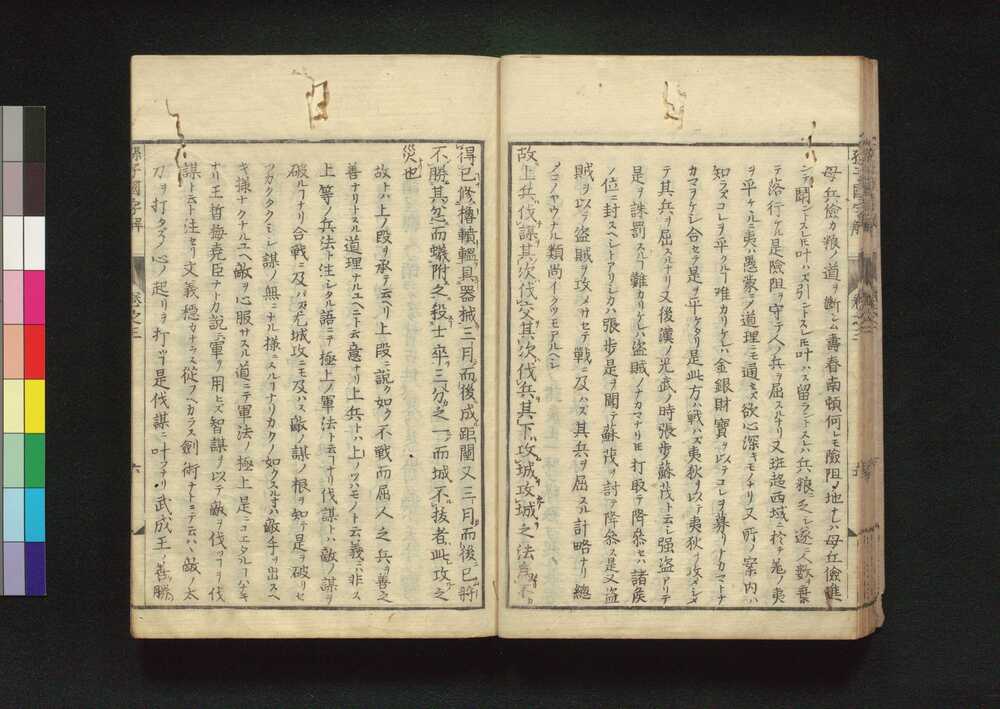 母丘儉カ粮ノ道ヲ斷シム壽春南頓何レモ險阻ノ地ナレハ母丘儉進
ンテ鬪ントスレ𪜈叶ハズ引ントスレ𪜈叶ハス留ラントスレハ兵粮乏シ遂ニ人數ヲ棄
テ落行ケル是險阻ヲ守テ人ノ兵ヲ屈スルナリ又班超西域ニ於テ夷
ヲ平ケルニ夷ハ愚蒙ニ乄道理ニモ通セズ欲心深キモノナリ又所ノ案内ハ
知ラズコレヲ平クル𪜈難カリケレハ金銀財寶ヲ以テコレヲ募リナカマトナ
カマヲケシ合セテ是ヲ平ケタリ是此方ハ戰ハズ夷狄ヲ以テ夷狄ヲ攻メシメ
テ其兵ヲ屈スルナリ又後漢ノ光武ノ時張步蘇茂ト云シ强盜アリテ
是ヲ誅罰スル𪜈難カリケレハ盜賊ノナカマナリ𪜈打取テ降參セハ諸侯
ノ位ニ封スヘシトアリシカハ張步是ヲ聞テ蘇茂ヲ討テ降參ス是又盜
賊ヲ以テ盜賊ヲ攻メサセテ戰ニ及ハズ其兵ヲ屈スル計略ナリ總
メコノヤウナル類尚イクツモアルヘシ
故上兵伐謀其次伐交其次伐兵其下攻城攻城之法爲不
得已修櫓轒轀具器械三月而後成距闉又三月而後已將
不勝其忿而蟻附之殺士卒三分之一而城不拔者此攻之
災也
故トハ上ノ段ヲ承テ云ヘリ上段ニ說ク如ク不戰而屈人之兵ヲ善之
善ナリトスル道理ナルユヘニト云意ナリ上兵トハ上ノツハモノト云義ニ非ス
上等ノ兵法ト注シタル語ニテ極上ノ軍法ト云𪜈ナリ伐謀トハ敵ノ謀ヲ
破ル𪜈ナリ合戰ニ及ハズ尤城攻ニモ及ハズ敵ノ謀ノ根ヲ知テ是ヲ破リセ
ツカクタクミシ謀ノ無ニナル様ニスル𪜈ナリカクノ如クスルトキハ敵手ヲ出スヘ
キ様ナクナルユヘ敵ヲ心服サスル道ニテ軍法ノ極上是ニコエタル𪜈ナキ
ナリ王晳梅堯臣ナトカ說ニ軍ヲ用ヒズ智謀ヲ以テ敵ヲ伐ツ𪜈ヲ伐
謀ト云ト注セリ文義穩カナラス從フヘカラス劍術ナトニテ云ハヽ敵ノ太
刀ヲ打タズシ乄心ノ起リヲ打ツ𪜈是伐謀ニ叶フナリ武成王ノ善勝
孫子國字解
卷之三
六